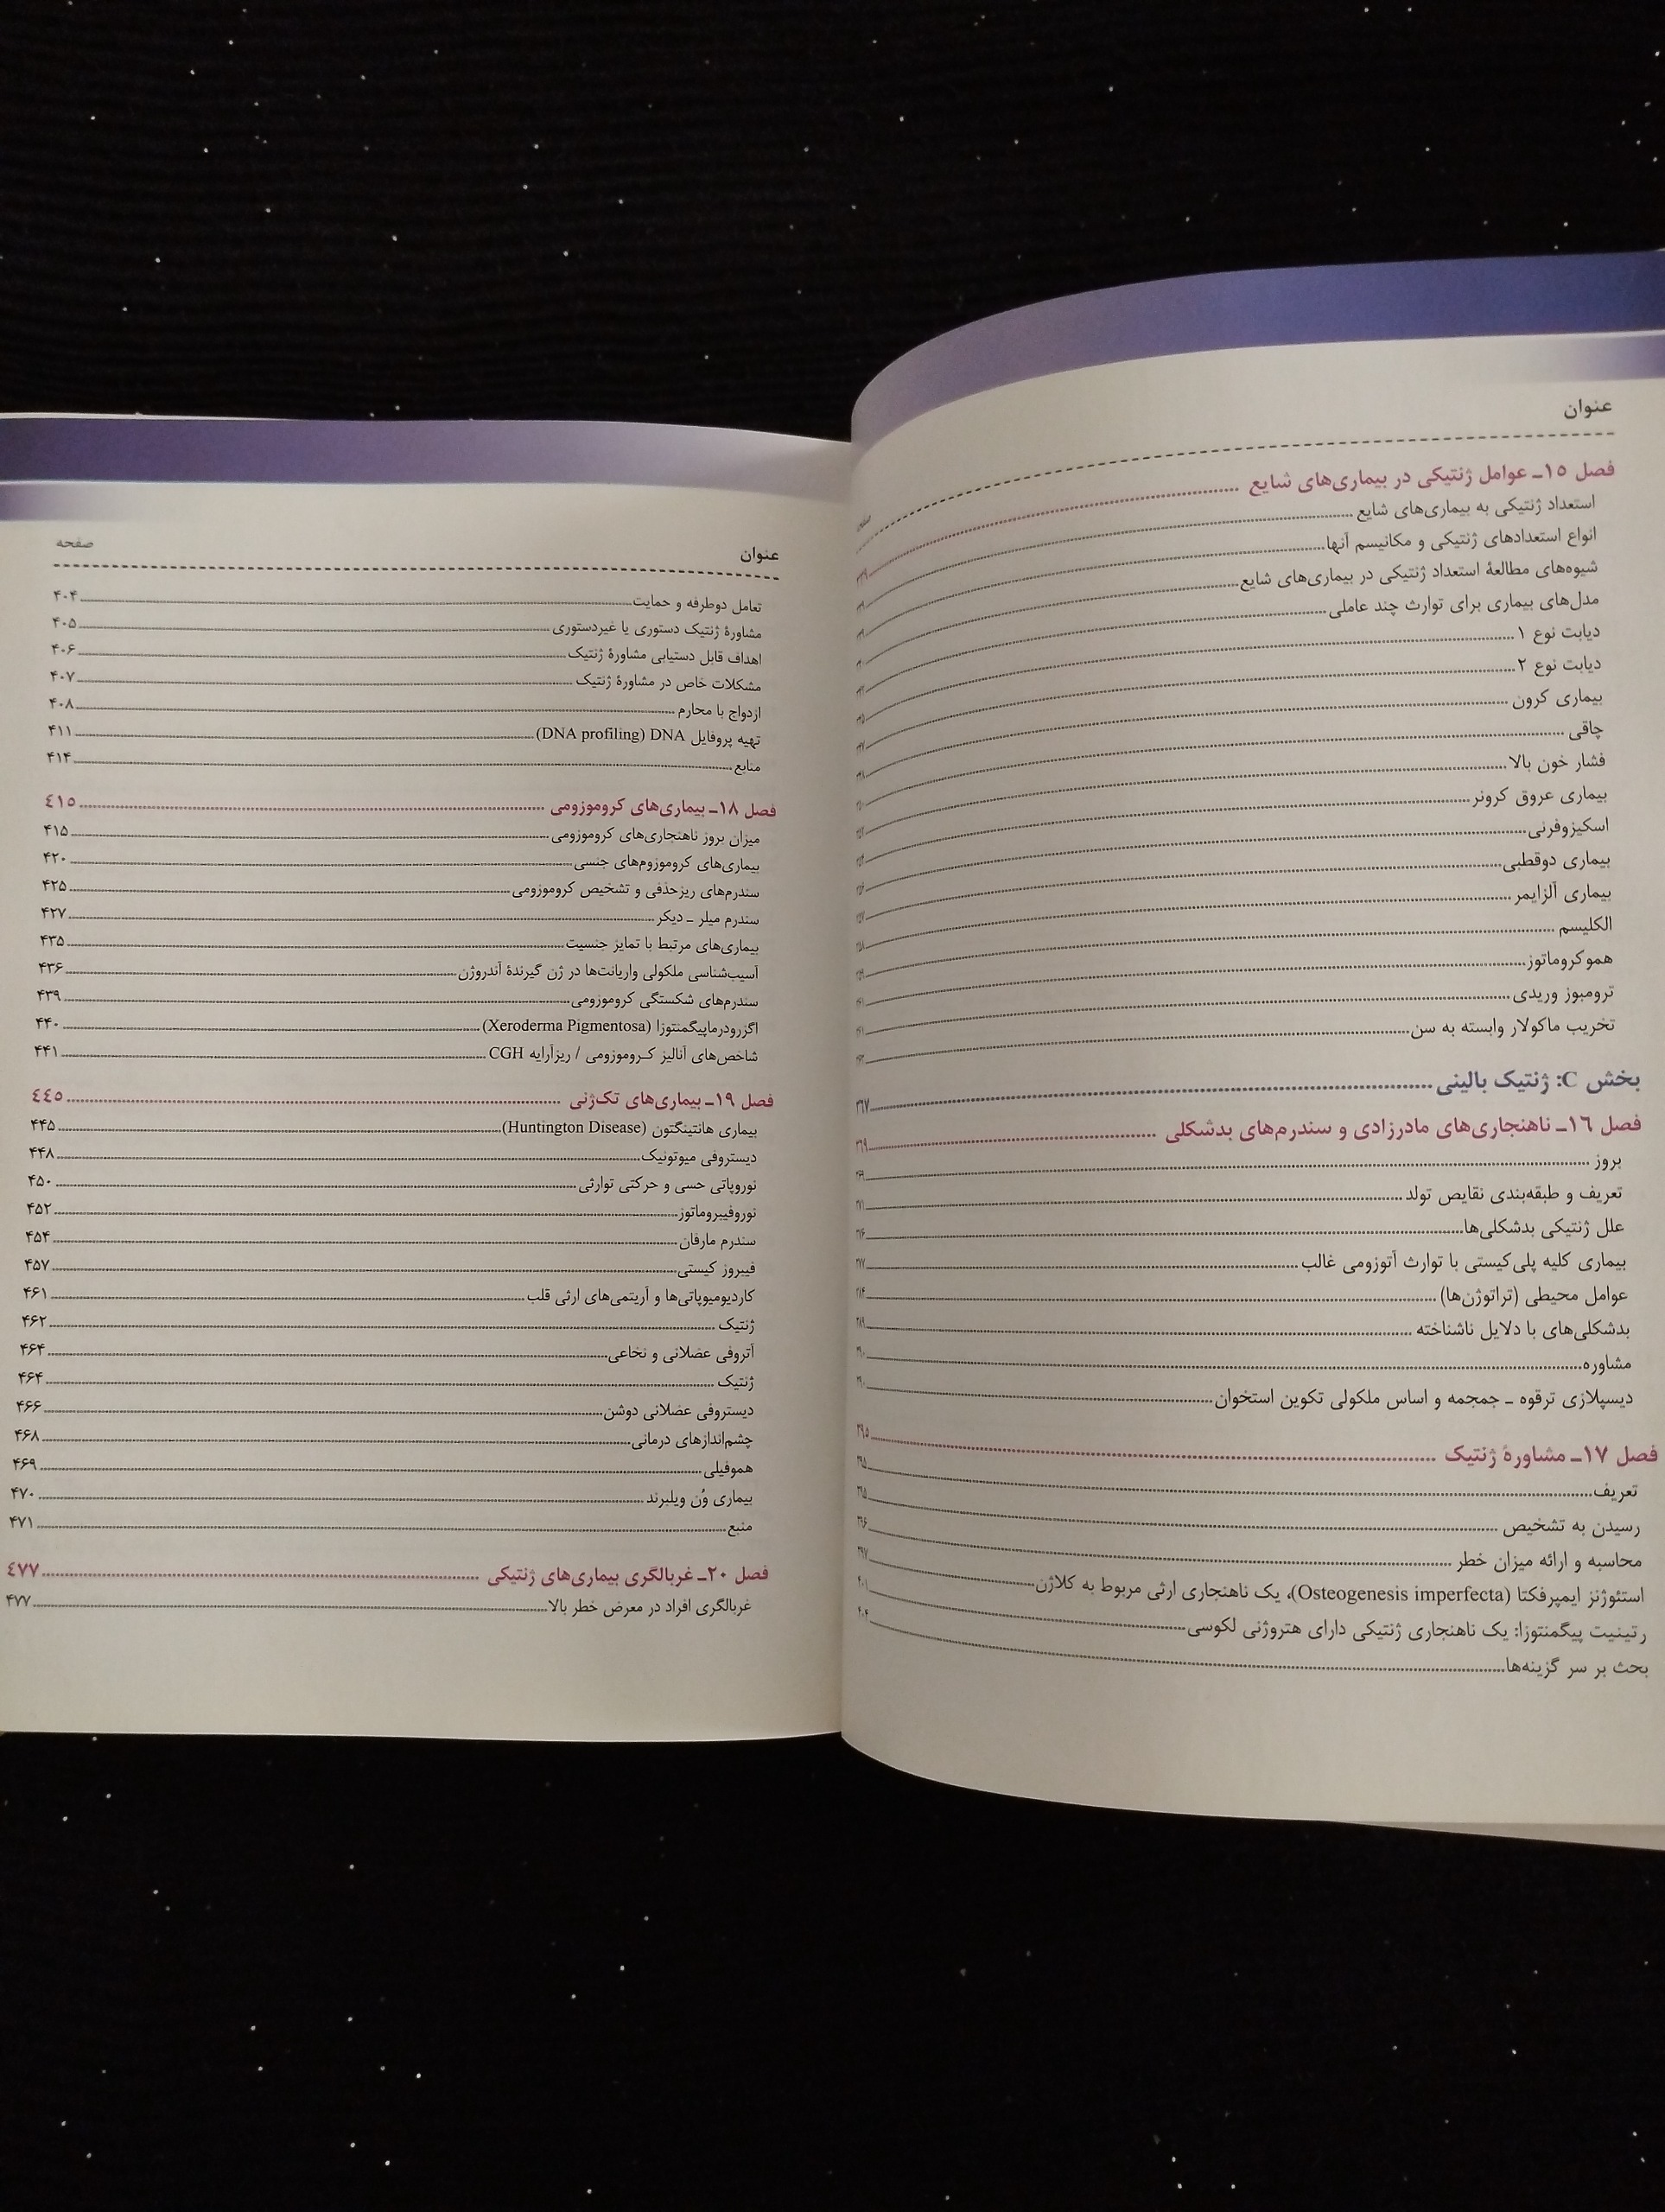 عنوان
فصل ١٥ـ عوامل ژنتیکی در بیماری‌های شایع
استعداد ژنتیکی به بیماری‌های شایع
انواع استعدادهای ژنتیکی و مکانیسم آنها
شیوه‌های مطالعهٔ استعداد ژنتیکی در بیماری‌های شایع
مدل‌های بیماری برای توارث چند عاملی
دیابت نوع ۱
دیابت نوع ۲
بیماری کرون
چاقی
فشار خون بالا
بیماری عروق کرونر
اسکیزوفرنی
بیماری دوقطبی
بیماری آلزایمر
الکلیسم
هموکروماتوز
ترومبوز وریدی
تخریب ماکولار وابسته به سن
بخش C: ژنتیک بالینی ۳۶۷
فصل ١٦ـ ناهنجاری‌های مادرزادی و سندرم‌های بدشکلی ٣٦٩
بروز ۳۶۹
تعریف و طبقه‌بندی نقایص تولد ۳۷۱
علل ژنتیکی بدشکلی‌ها ۳۷۶
بیماری کلیه پلی‌کیستی با توارث آتوزومی غالب ۳۷۷
عوامل محیطی (تراتوژن‌ها) ۳۸۴
بدشکلی‌های با دلایل ناشناخته ۳۸۹
مشاوره ۳۹۰
دیسپلازی ترقوه ـ جمجمه و اساس ملکولی تکوین استخوان ۳۹۰
فصل ١٧ـ مشاورهٔ ژنتیک ٣٩٥
تعریف ۳۹۵
رسیدن به تشخیص ۳۹۵
محاسبه و ارائه میزان خطر ۳۹۶
استئوژنز ایمپرفکتا (Osteogenesis imperfecta)، یک ناهنجاری ارثی مربوط به کلاژن ۳۹۷
رتینیت پیگمنتوزا: یک ناهنجاری ژنتیکی دارای هتروژنی لکوسی ۴۰۱
بحث بر سر گزینه‌ها ۴۰۴
عنوان صفحه
تعامل دوطرفه و حمایت ۴۰۴
مشاورهٔ ژنتیک دستوری یا غیردستوری ۴۰۵
اهداف قابل دستیابی مشاورهٔ ژنتیک ۴۰۶
مشکلات خاص در مشاورهٔ ژنتیک ۴۰۷
ازدواج با محارم ۴۰۸
تهیه پروفایل DNA (DNA profiling) ۴۱۱
منابع ۴۱۴
فصل ١٨ـ بیماری‌های کروموزومی ٤١٥
میزان بروز ناهنجاری‌های کروموزومی ۴۱۵
بیماری‌های کروموزوم‌های جنسی ۴۲۰
سندرم‌های ریزحذفی و تشخیص کروموزومی ۴۲۵
سندرم میلر ـ دیکر ۴۲۷
بیماری‌های مرتبط با تمایز جنسیت ۴۳۵
آسیب‌شناسی ملکولی واریانت‌ها در ژن گیرندهٔ آندروژن ۴۳۶
سندرم‌های شکستگی کروموزومی ۴۳۹
اگزرودرماپیگمنتوزا (Xeroderma Pigmentosa) ۴۴۰
شاخص‌های آنالیز کـروموزومی / ریزآرایه CGH ۴۴۱
فصل ١٩ـ بیماری‌های تک‌ژنی ٤٤٥
بیماری هانتینگتون (Huntington Disease) ۴۴۵
دیستروفی میوتونیک ۴۴۸
نوروپاتی حسی و حرکتی توارثی ۴۵۰
نوروفیبروماتوز ۴۵۲
سندرم مارفان ۴۵۴
فیبروز کیستی ۴۵۷
کاردیومیوپاتی‌ها و آریتمی‌های ارثی قلب ۴۶۱
ژنتیک ۴۶۲
آتروفی عضلانی و نخاعی ۴۶۴
ژنتیک ۴۶۴
دیستروفی عضلانی دوشن ۴۶۶
چشم‌اندازهای درمانی ۴۶۸
هموفیلی ۴۶۹
بیماری وُن ویلبرند ۴۷۰
منبع ۴۷۱
فصل ٢٠ـ غربالگری بیماری‌های ژنتیکی ٤٧٧
غربالگری افراد در معرض خطر بالا ۴۷۷